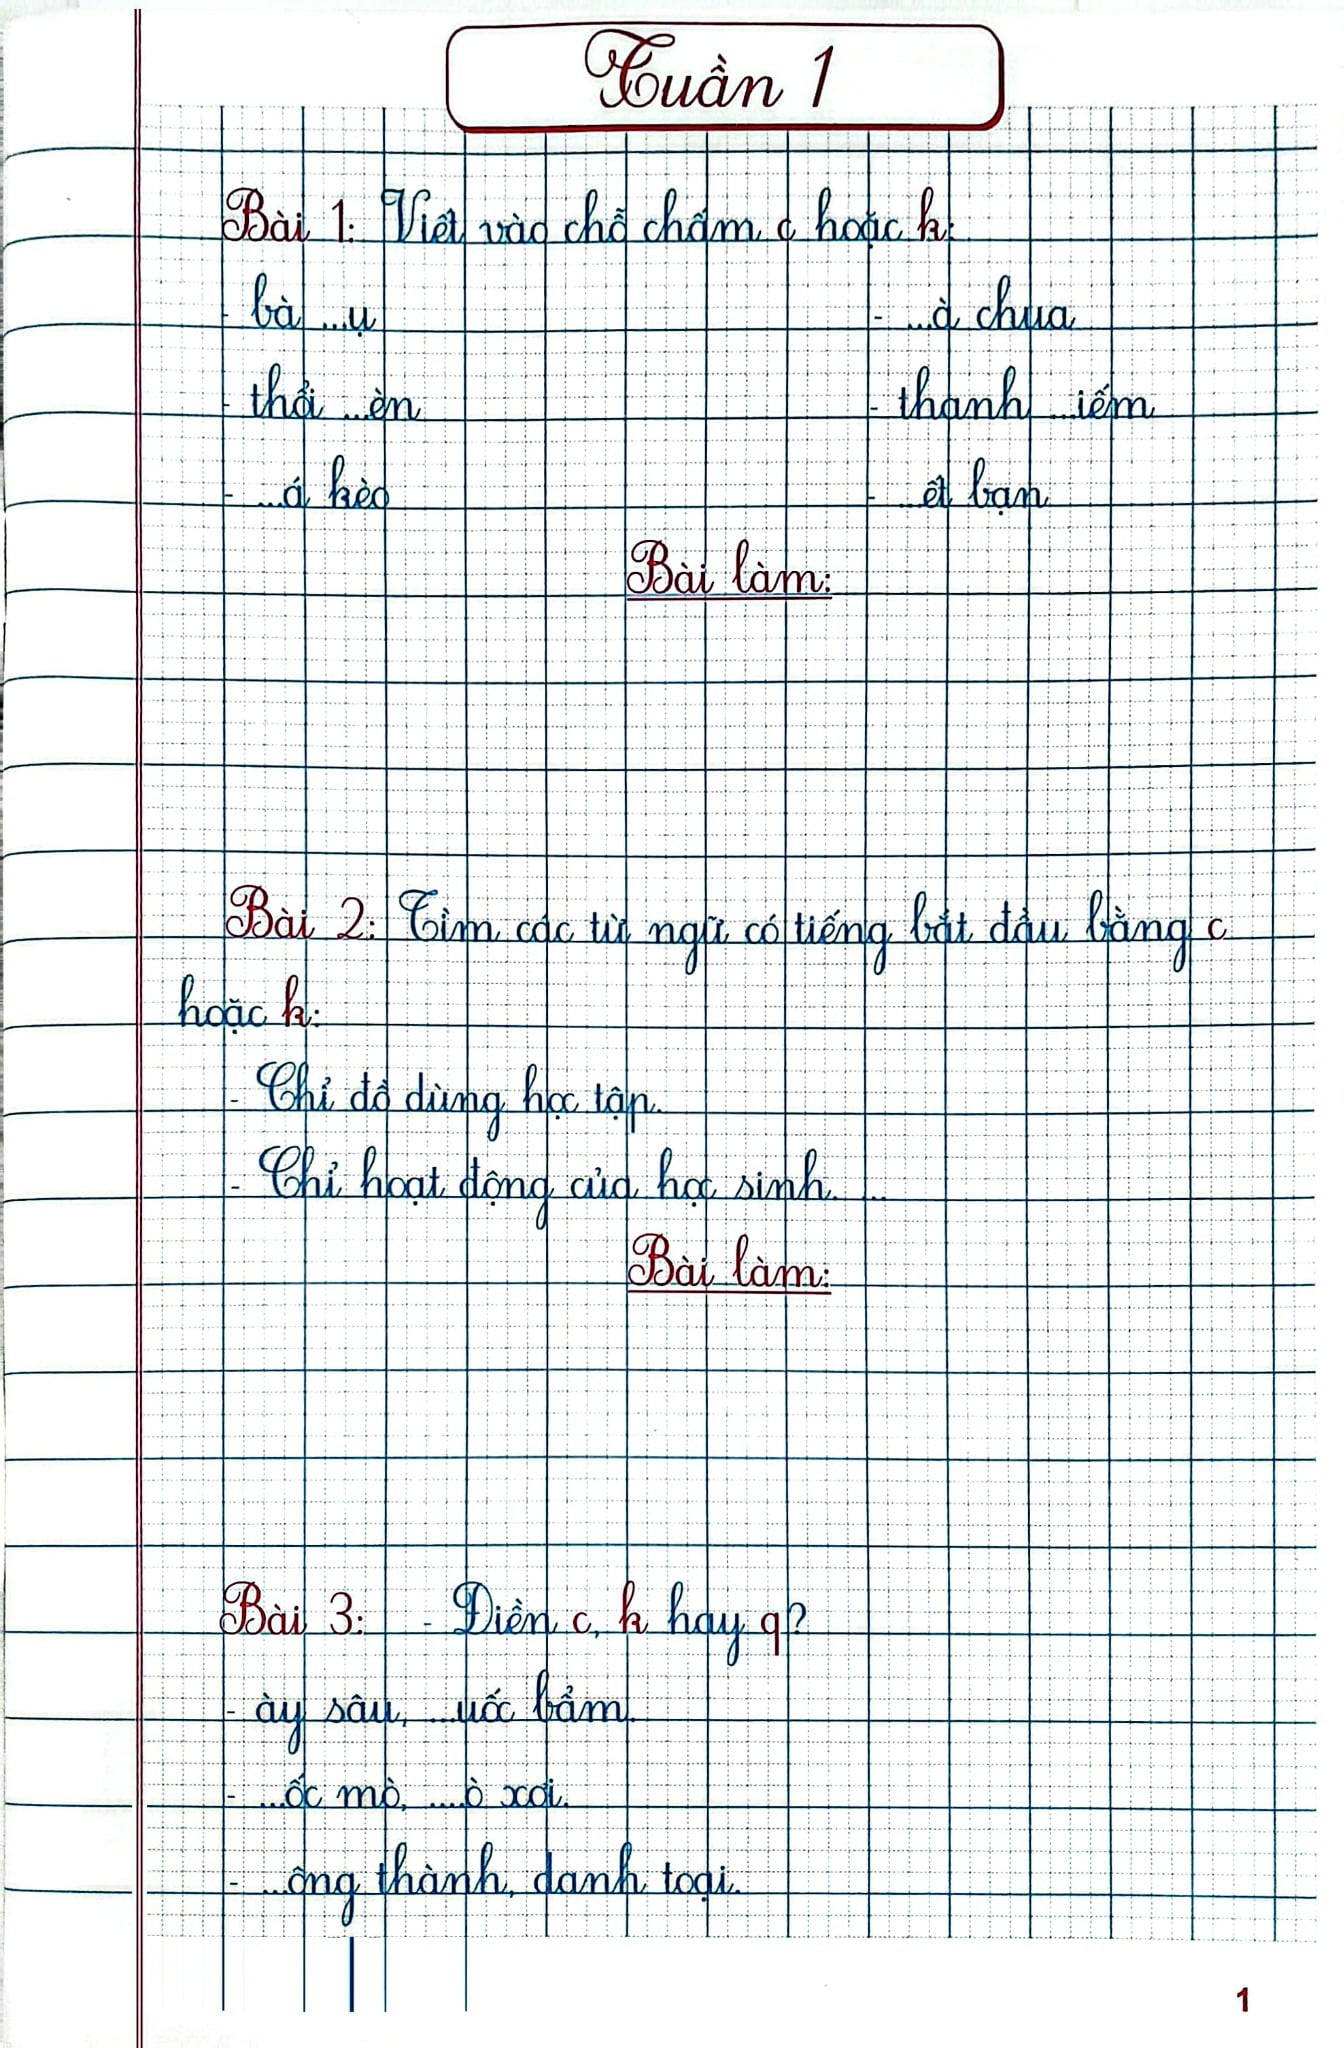 Tuần 1
Bài 1: Viết vào chỗ chấm c hoặc k:
- bà ...ụ - ...à chua
- thổi ...èn - thanh ...iếm
- ...á kèo - ...ết bạn
Bài làm:
Bài 2: Tìm các từ ngữ có tiếng bắt đầu bằng c
hoặc k:
- Chỉ đồ dùng học tập.
- Chỉ hoạt động của học sinh. ...
Bài làm:
Bài 3: - Điền c, k hay q?
- ày sâu, ...uốc bẩm.
- ...ốc mò, ....ò xơi.
- ...ông thành, danh toại.
1